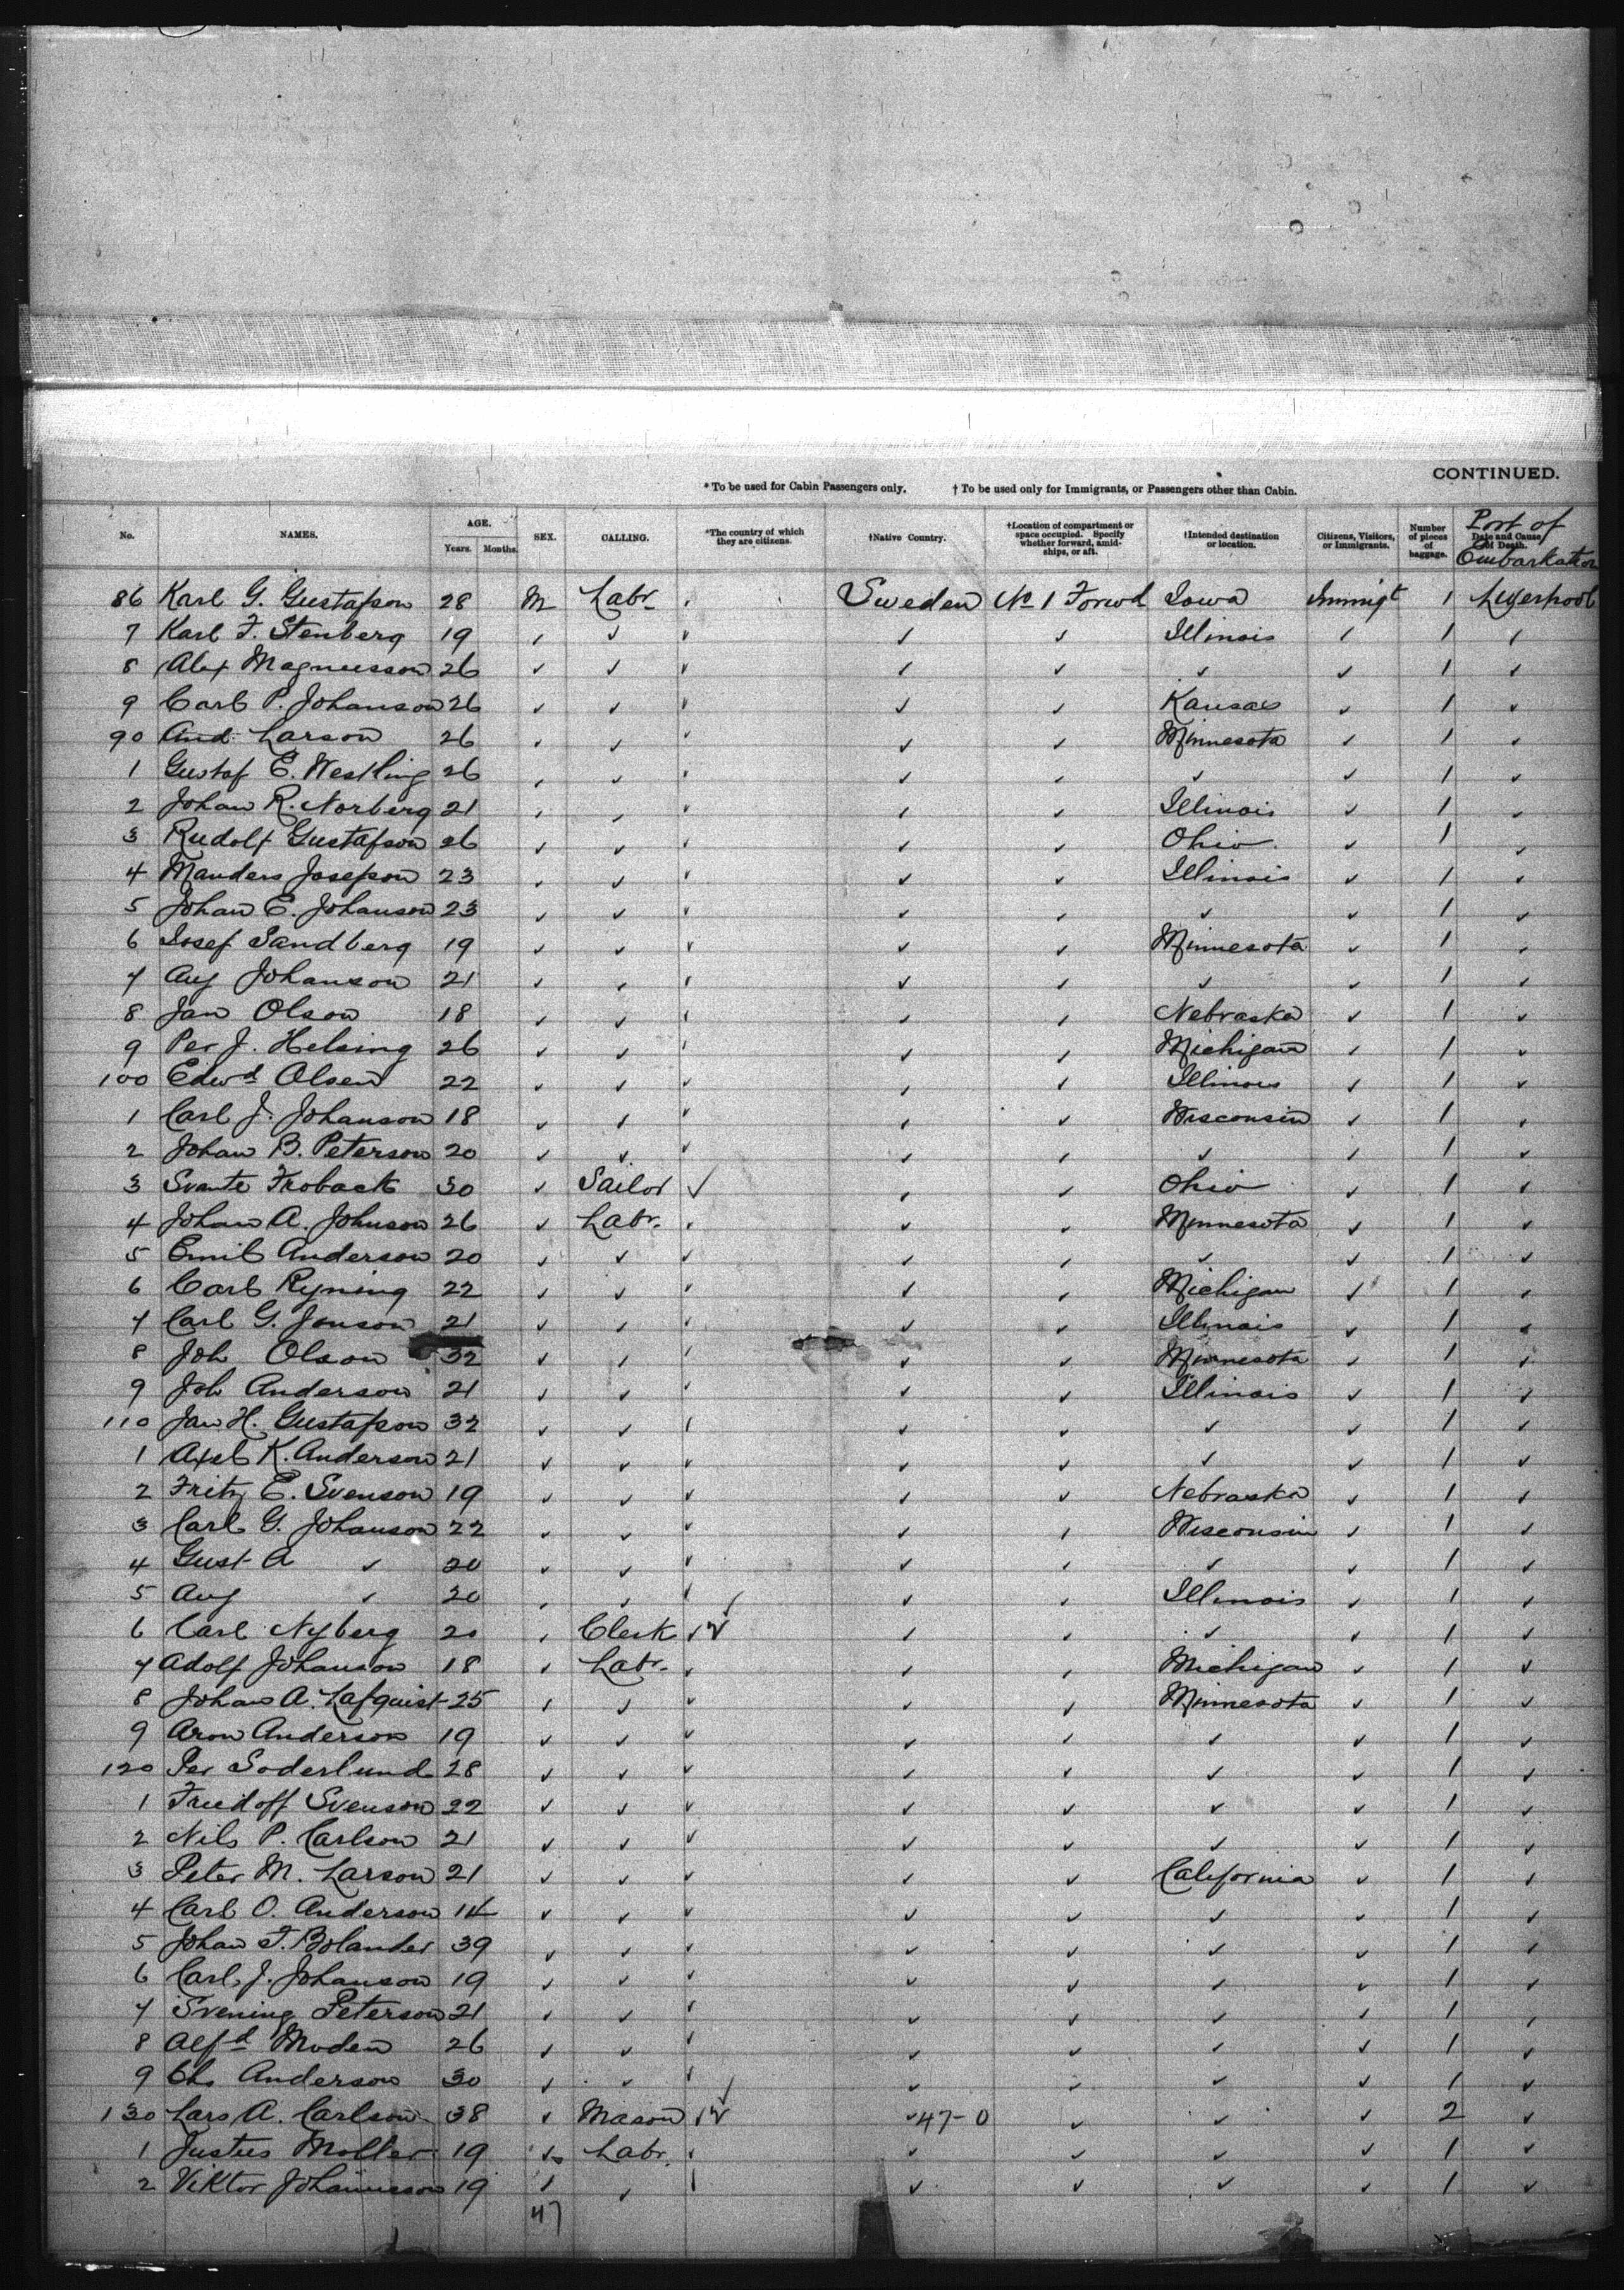 CONTINUED.
* To be used for Cabin Passengers only. † To be used only for Immigrants, or Passengers other than Cabin.
No. NAMES. AGE. Years. Months. SEX. CALLING. *The country of which they are citizens. †Native Country. †Location of compartment or space occupied. Specify whether forward, amidships, or aft. †Intended destination or location. Citizens, Visitors, or Immigrants. Number of pieces of baggage. Date and Cause of Death. Port of Embarkation
86 Karl G. Gustafson 28 M Labr Sweden No 1 Forwd Iowa Immigt 1 Liverpool
7 Karl F. Stenberg 19 ✓ ✓ ✓ ✓ ✓ Illinois ✓ 1 ✓
8 Alex Magnusson 26 ✓ ✓ ✓ ✓ ✓ ✓ ✓ 1 ✓
9 Carl P. Johanson 26 ✓ ✓ ✓ ✓ ✓ Kansas ✓ 1 ✓
90 And Larson 26 ✓ ✓ ✓ ✓ ✓ Minnesota ✓ 1 ✓
1 Gustaf E. Westling 26 ✓ ✓ ✓ ✓ ✓ ✓ ✓ 1 ✓
2 Johan R. Norberg 21 ✓ ✓ ✓ ✓ ✓ Illinois ✓ 1 ✓
3 Rudolf Gustafson 26 ✓ ✓ ✓ ✓ ✓ Ohio ✓ 1 ✓
4 Manders Josefson 23 ✓ ✓ ✓ ✓ ✓ Illinois ✓ 1 ✓
5 Johan E. Johanson 23 ✓ ✓ ✓ ✓ ✓ ✓ ✓ 1 ✓
6 Josef Sandberg 19 ✓ ✓ ✓ ✓ ✓ Minnesota ✓ 1 ✓
7 Aug Johanson 21 ✓ ✓ ✓ ✓ ✓ ✓ ✓ 1 ✓
8 Jan Olson 18 ✓ ✓ ✓ ✓ ✓ Nebraska ✓ 1 ✓
9 Per J. Helsing 26 ✓ ✓ ✓ ✓ ✓ Michigan ✓ 1 ✓
100 Edwd Olsen 22 ✓ ✓ ✓ ✓ ✓ Illinois ✓ 1 ✓
1 Carl J. Johanson 18 ✓ ✓ ✓ ✓ ✓ Wisconsin ✓ 1 ✓
2 Johan B. Peterson 20 ✓ ✓ ✓ ✓ ✓ ✓ ✓ 1 ✓
3 Svante Froback 30 ✓ Sailor ✓ ✓ ✓ Ohio ✓ 1 ✓
4 Johan A. Johnson 26 ✓ Labr. ✓ ✓ ✓ Minnesota ✓ 1 ✓
5 Emil Anderson 20 ✓ ✓ ✓ ✓ ✓ ✓ ✓ 1 ✓
6 Carl Ryning 22 ✓ ✓ ✓ ✓ ✓ Michigan ✓ 1 ✓
7 Carl G. Jonson 21 ✓ ✓ ✓ ✓ ✓ Illinois ✓ 1 ✓
8 Joh Olson 32 ✓ ✓ ✓ ✓ ✓ Minnesota ✓ 1 ✓
9 Joh Anderson 21 ✓ ✓ ✓ ✓ ✓ Illinois ✓ 1 ✓
110 Jan H. Gustafson 32 ✓ ✓ ✓ ✓ ✓ ✓ ✓ 1 ✓
1 Axel K. Anderson 21 ✓ ✓ ✓ ✓ ✓ ✓ ✓ 1 ✓
2 Fritz E. Svenson 19 ✓ ✓ ✓ ✓ ✓ Nebraska ✓ 1 ✓
3 Carl G. Johanson 22 ✓ ✓ ✓ ✓ ✓ Wisconsin ✓ 1 ✓
4 Gust A ✓ 20 ✓ ✓ ✓ ✓ ✓ ✓ ✓ 1 ✓
5 Aug ✓ 20 ✓ ✓ ✓ ✓ ✓ Illinois ✓ 1 ✓
6 Carl Nyberg 20 ✓ Clerk ✓ ✓ ✓ ✓ ✓ 1 ✓
7 Adolf Johanson 18 ✓ Labr. ✓ ✓ ✓ Michigan ✓ 1 ✓
8 Johan A. Lafquist 25 ✓ ✓ ✓ ✓ ✓ Minnesota ✓ 1 ✓
9 Aron Anderson 19 ✓ ✓ ✓ ✓ ✓ ✓ ✓ 1 ✓
120 Per Soderlund 28 ✓ ✓ ✓ ✓ ✓ ✓ ✓ 1 ✓
1 Friedoff Svenson 22 ✓ ✓ ✓ ✓ ✓ ✓ ✓ 1 ✓
2 Nils P. Carlson 21 ✓ ✓ ✓ ✓ ✓ ✓ ✓ 1 ✓
3 Peter M. Larson 21 ✓ ✓ ✓ ✓ ✓ California ✓ 1 ✓
4 Carl O. Anderson 14 ✓ ✓ ✓ ✓ ✓ ✓ ✓ 1 ✓
5 Johan F. Bolander 39 ✓ ✓ ✓ ✓ ✓ ✓ ✓ 1 ✓
6 Carl J. Johanson 19 ✓ ✓ ✓ ✓ ✓ ✓ ✓ 1 ✓
7 Svening Peterson 21 ✓ ✓ ✓ ✓ ✓ ✓ ✓ 1 ✓
8 Alfd Moden 26 ✓ ✓ ✓ ✓ ✓ ✓ ✓ 1 ✓
9 Chs Anderson 30 ✓ ✓ ✓ ✓ ✓ ✓ ✓ 1 ✓
130 Lars A. Carlson 38 ✓ Mason ✓ ✓ 47-0 ✓ ✓ ✓ 2 ✓
1 Justus Moller 19 ✓ Labr. ✓ ✓ ✓ ✓ ✓ 1 ✓
2 Viktor Johannesson 19 ✓ ✓ ✓ ✓ ✓ ✓ ✓ 1 ✓
47